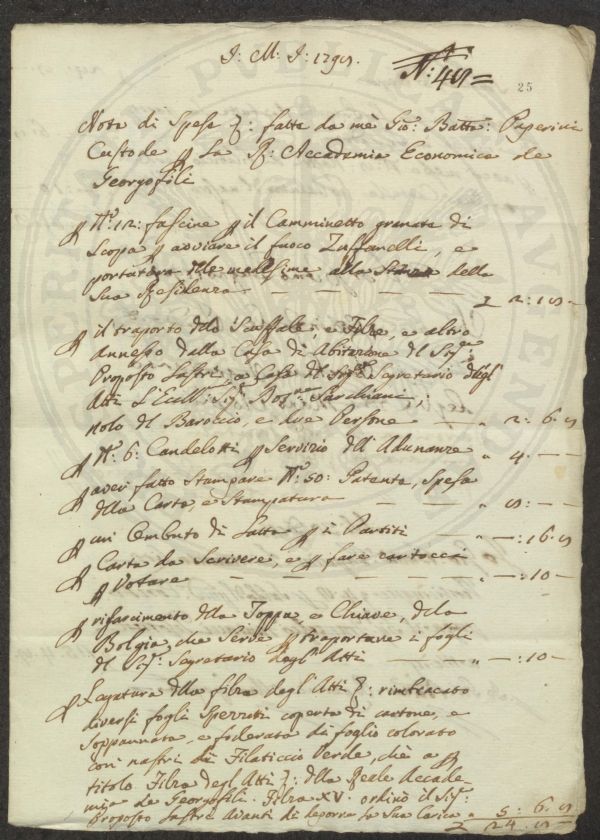 J: M: J: 179
N: 40 =
25
Nota di Spese fatte da mè Gio: Batta: Paperini
Custode p La R: Accademia Economica de
Georgofili
p N.º 12: fascine p il Camminetto granata di
Scopa p avviare il fuoco Zuffanelli, e
portatura delle medesime alla Stanza della
Sua Residenza — — — — 2:
p il traporto dello Scaffale, e Filze, e altro
annesso dalla Casa di Abitazione del Sig:
Proposto Lastri a Casa del Sig: Segretario degli
Atti L'Ecell: Sig: Sarchiani,
nolo del Baroccio, e due Persone — " 2: 6.
p N.º 6: Candelotti p Servizio dell'Adunanze " 4. —
p aver fatto Stampare N.º 50: Patente, Spesa
della Carta, e Stampatura — —
p un Cembuto di Latta p i Partiti — " —: 16.
p Carta da Scrivere, e p fare cartocci
p Votare — — — — " —: 10 —
p rifarcimento della Toppa, e Chiave, della
Bolgia che Serve p traportare i fogli
del Sig: Segretario degl'Atti — — " —: 10 —
p Legatura della filza degl'Atti rimbiecato
diversi fogli Spezzati coperta di cartone, e
Soppannata, e foderata di foglio colorato
con nastri di Filaticcio Verde, che a p
titolo Filza degl'Atti della Reale Accade-
mia de Georgofili. Filza XV. ordinò il Sig:
Proposto Lastri avanti di deporre la Sua Carica " 5: 6.
24